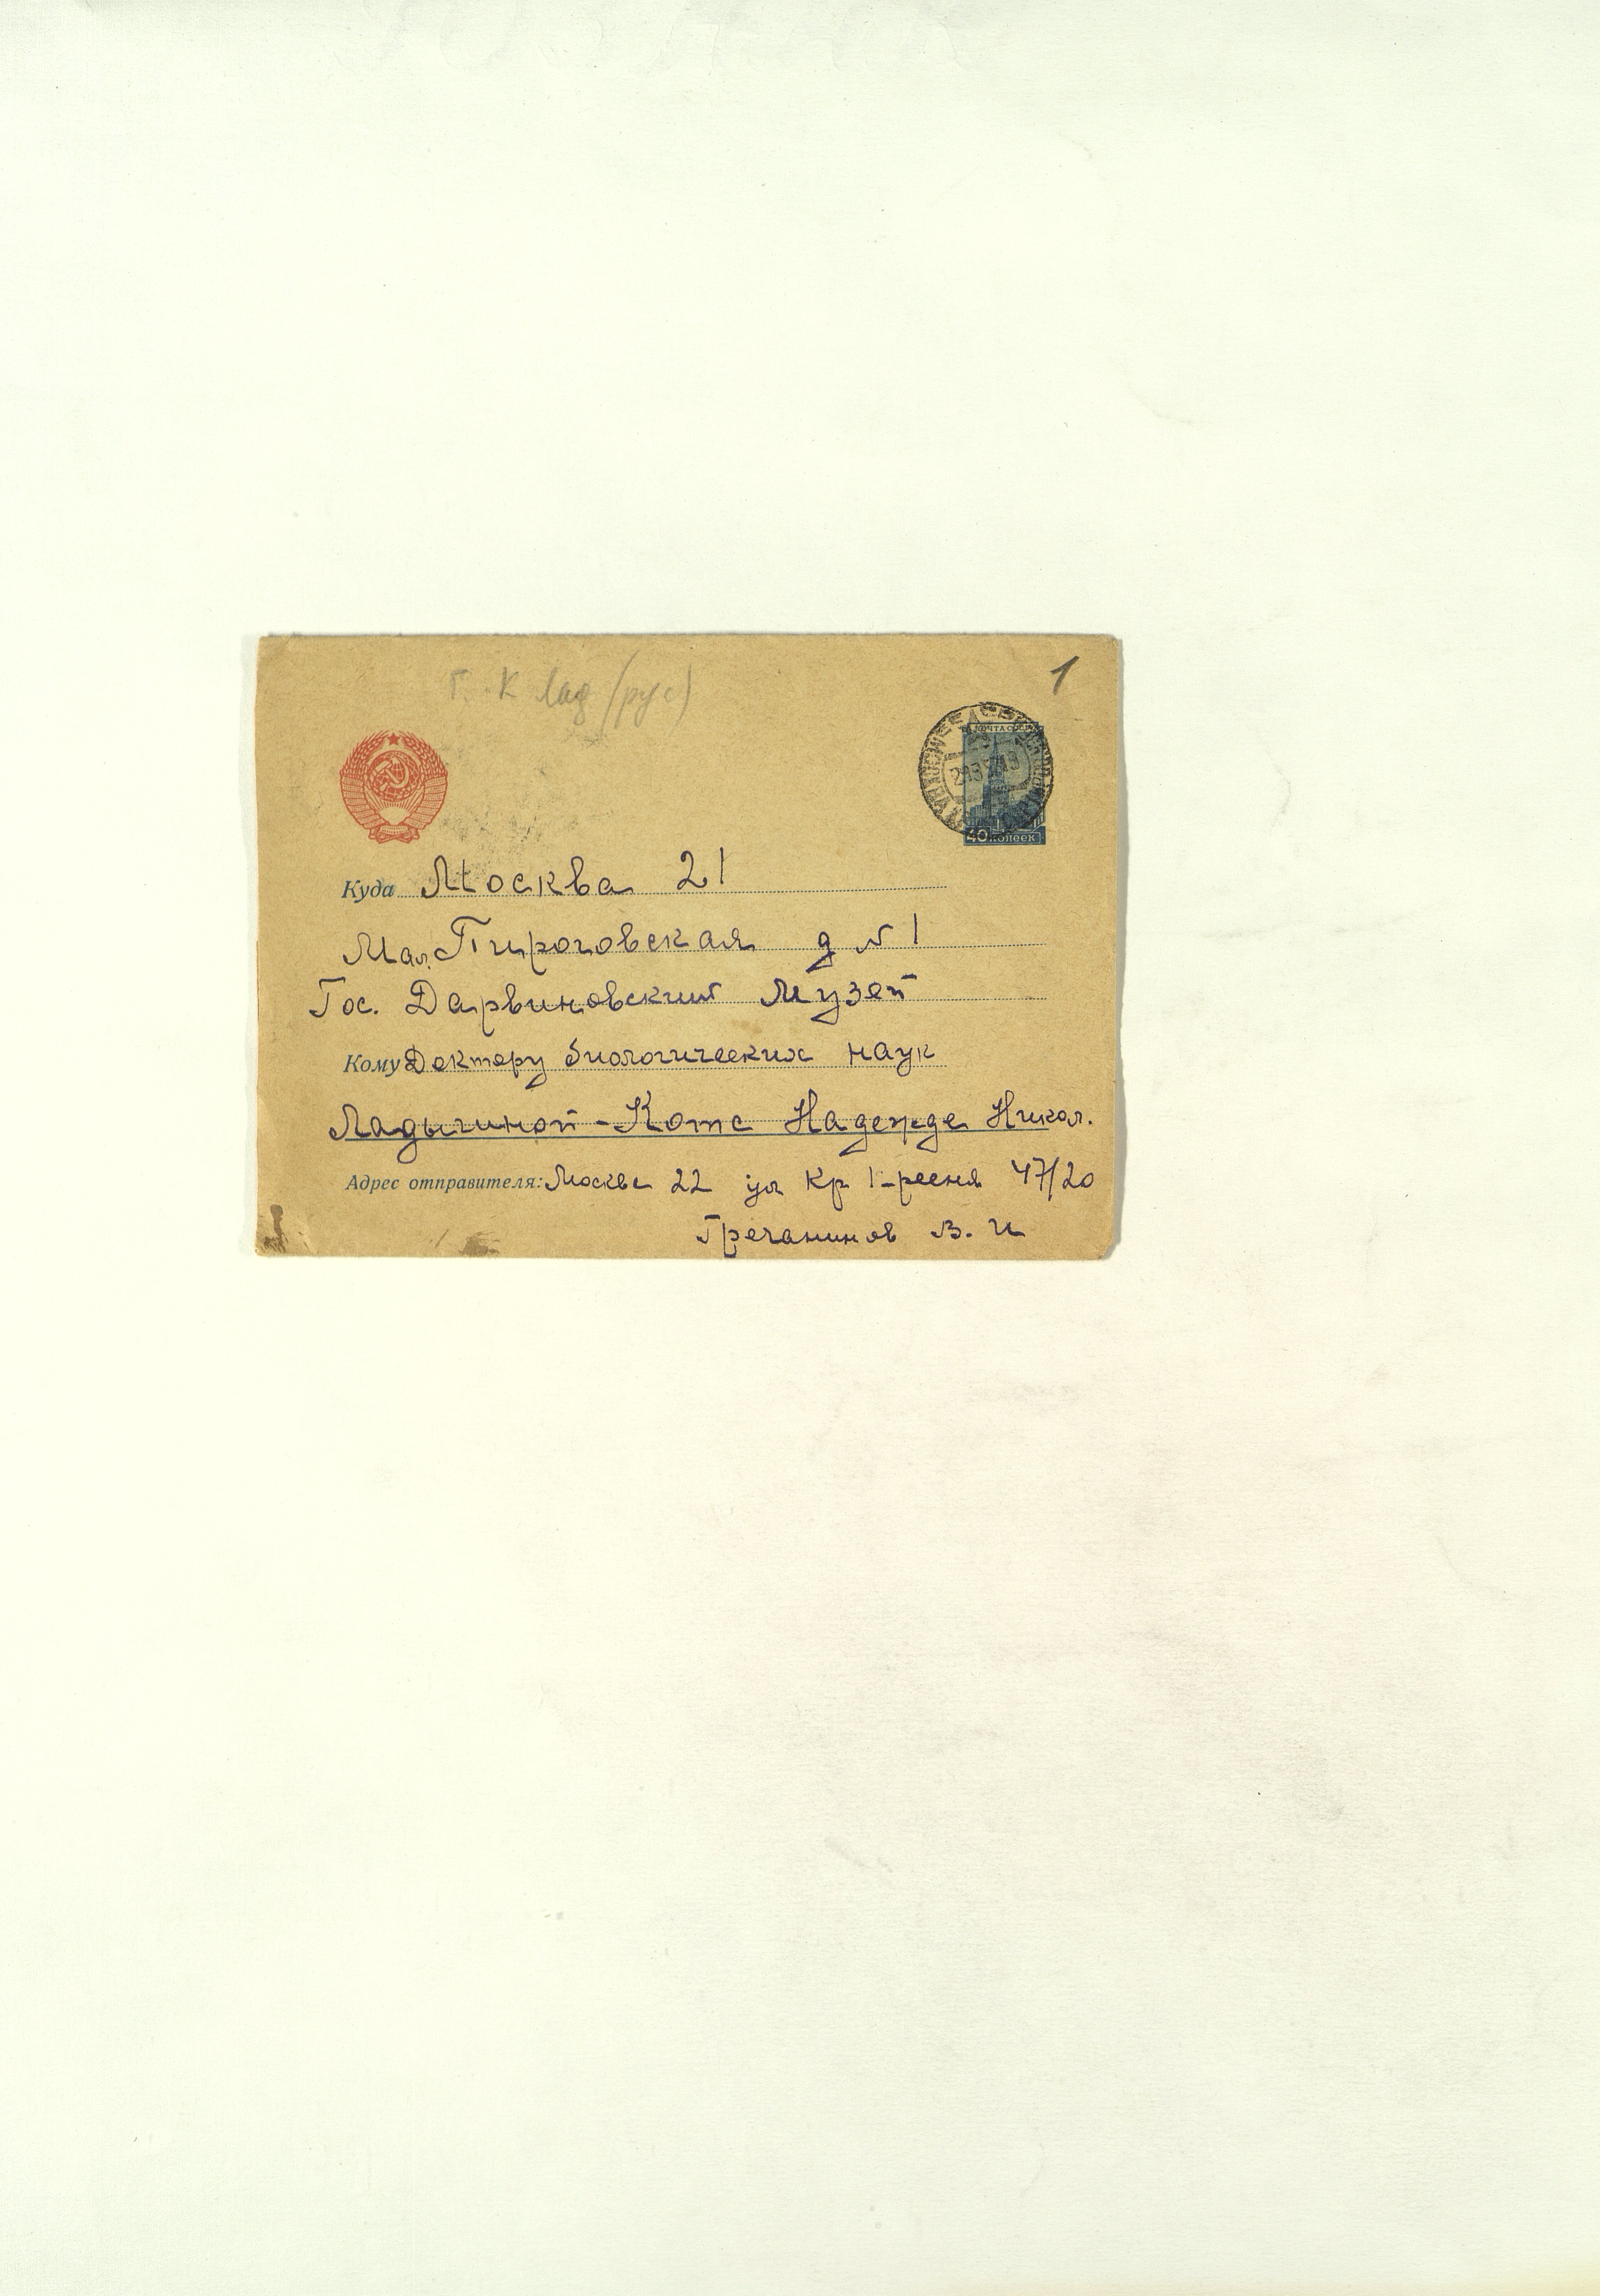 1
(рус)
ПОЧТА СССР
40 копеек
Куда Москва 21
Мал. Пироговская д N 1
Гос. Дарвиновский Музей
Кому Доктору биологических наук
Ладыгиной-Котс Надежде Никол.
Адрес отправителя: Москва 22 ул Кр Пресня 47/20
Гречанинов В. И